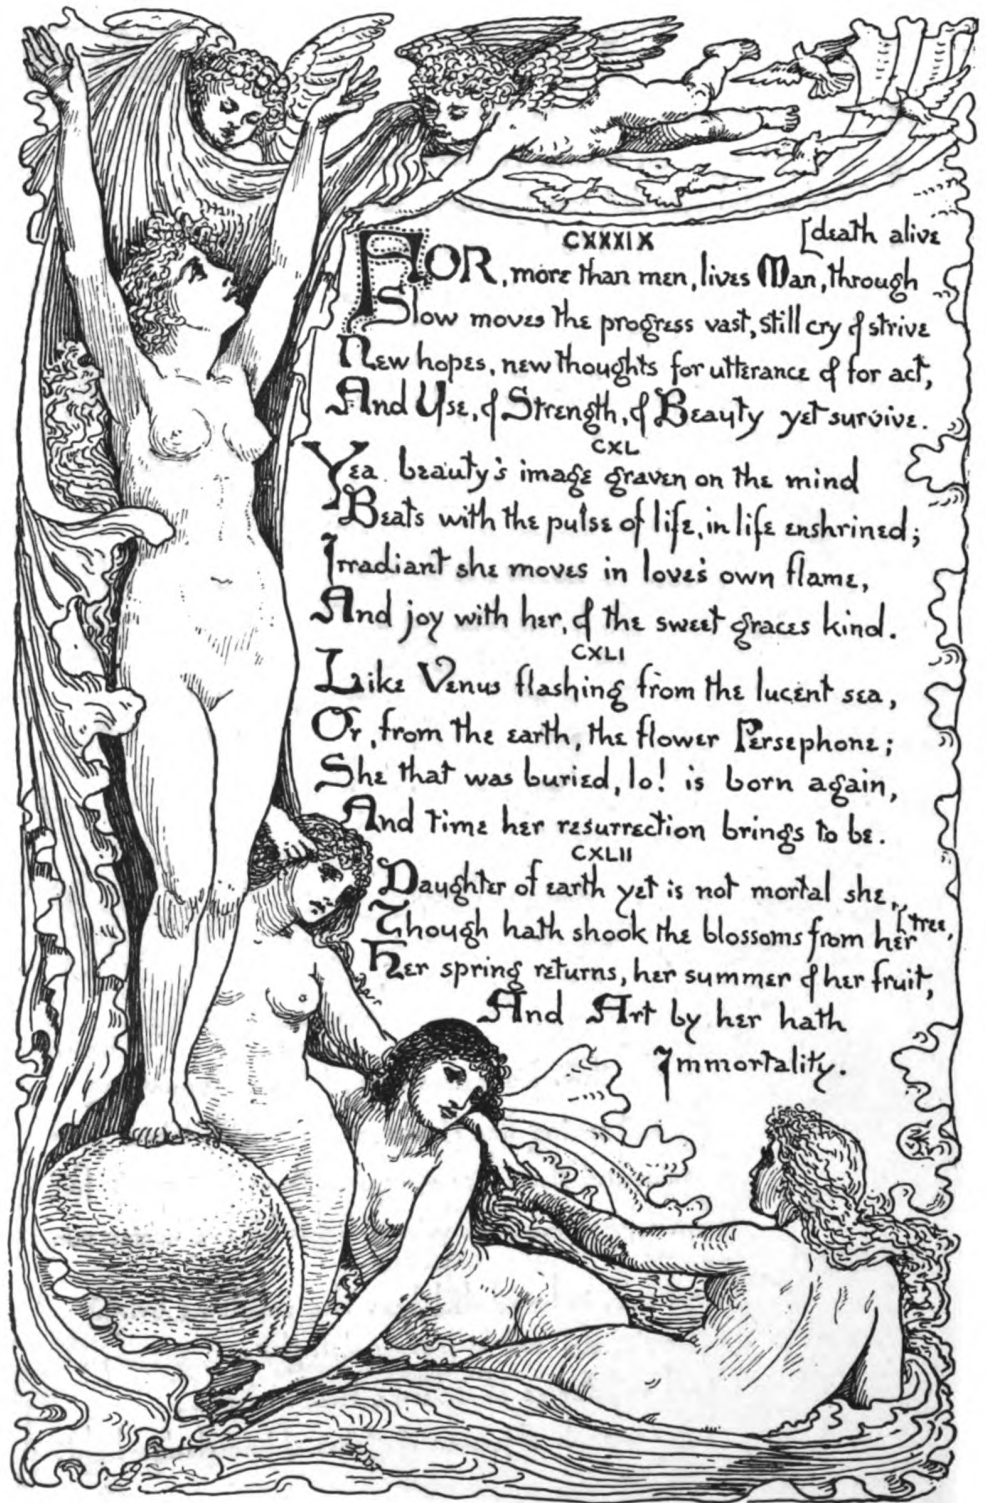 CXXXIX
[death alive
FOR, more than men, lives Man, through
Slow moves the progress vast, still cry & strive
New hopes, new thoughts for utterance & for act,
And Use, & Strength, & Beauty yet survive.
CXL
Yea beauty's image graven on the mind
Beats with the pulse of life, in life enshrined;
Irradiant she moves in love's own flame,
And joy with her, & the sweet graces kind.
CXLI
Like Venus flashing from the lucent sea,
Or, from the earth, the flower Persephone;
She that was buried, lo! is born again,
And time her resurrection brings to be.
CXLII
Daughter of earth yet is not mortal she,
[tree,
Though hath shook the blossoms from her
Her spring returns, her summer & her fruit,
And Art by her hath
Immortality.